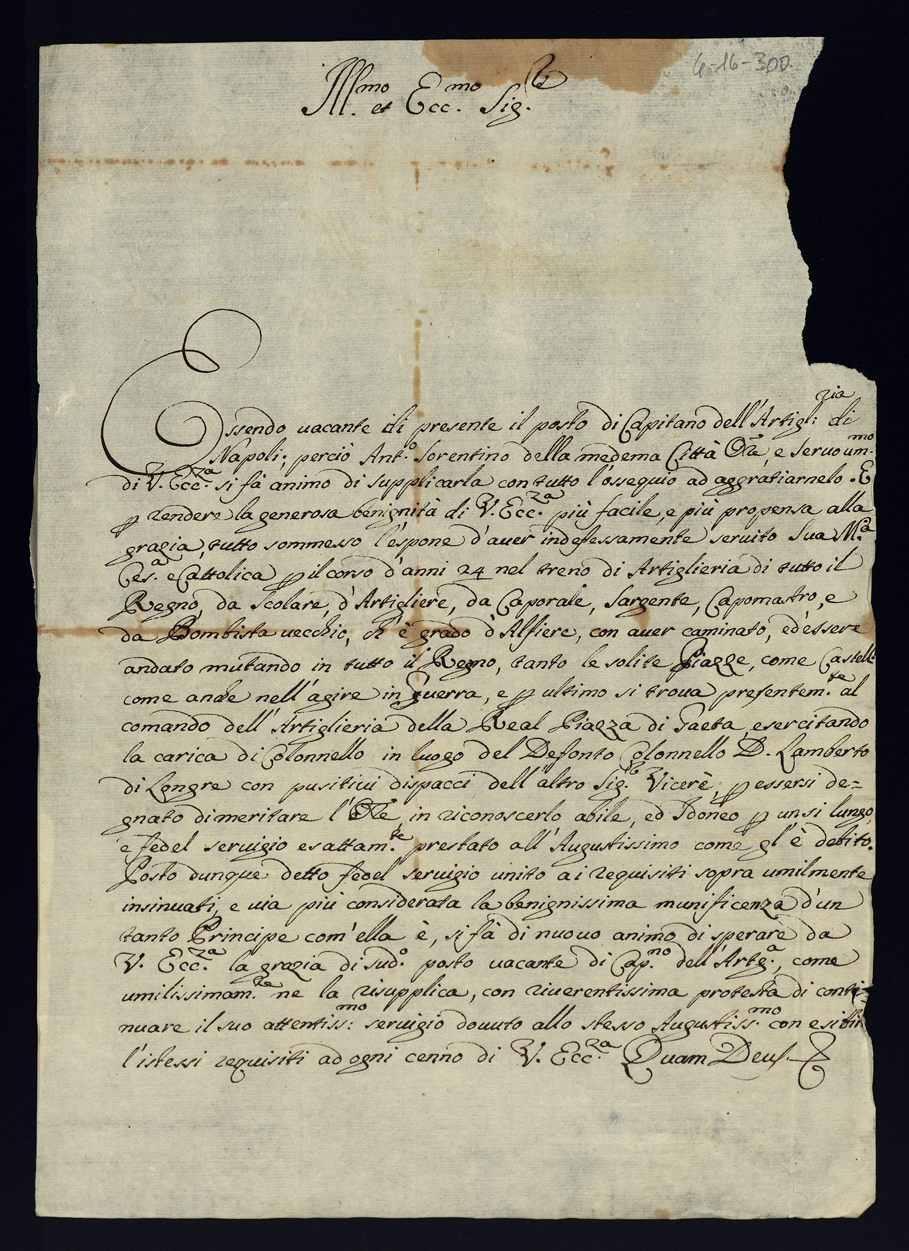 4-16-300
Ill.mo et Ecc.mo Sig.re
Essendo uacante di presente il posto di Capitano dell'Artigl:zia di
Napoli; perciò Ant.o Sorentino della medema Città Ore, e seruo um.mo
di V. Ecc.za si fà animo di supplicarla con tutto l'ossequio ad aggratiarnelo. E
p rendere la generosa benignità di V. Ecc.za più facile, e più propensa alla
grazia, tutto sommesso l'espone d'auer indefessamente seruito Sua M.a
Ces.a e Cattolica p il corso d'anni 24 nel treno di Artiglieria di tutto il
Regno, da Scolare, d'Artigliere, da Caporale, Sargente, Capomastro, e
da Bombista uecchio, ch'è grado d'Alfiere, con auer caminato, ed'essere
andato mutando in tutto il Regno, tanto le solite Piazze, come Castell
come anche nell'agire in guerra, e p ultimo si troua presentem.te al
comando dell'Artiglieria della Real Piazza di Gaeta, esercitando
la carica di Colonnello in luogo del Defonto Colonnello D. Lamberto
di Longre con pusitiui dispacci dell'altro Sig.re Vicerè, p essersi de=
gnato di meritare l'Ore, in riconoscerlo abile, ed Idoneo p un si lungo,
e fedel seruigio esattam.te prestato all'Augustissimo come gl'è debito.
Posto dunque detto fedel seruigio unito ai requisiti sopra umilmente
insinuati, e uia più considerata la benignissima munificenza d'un
tanto Principe com'ella è, si fà di nuouo animo di sperare da
V. Ecc.za la grazia di sud.o posto uacante di Cap.no dell'Artig.a, come
umilissimam.te ne la risupplica, con riuerentissima protesta di conti-
nuare il suo attentiss:mo seruigio douuto allo stesso Augustiss.mo con esibir
l'istessi requisiti ad ogni cenno di V. Ecc.za Quam Deus &